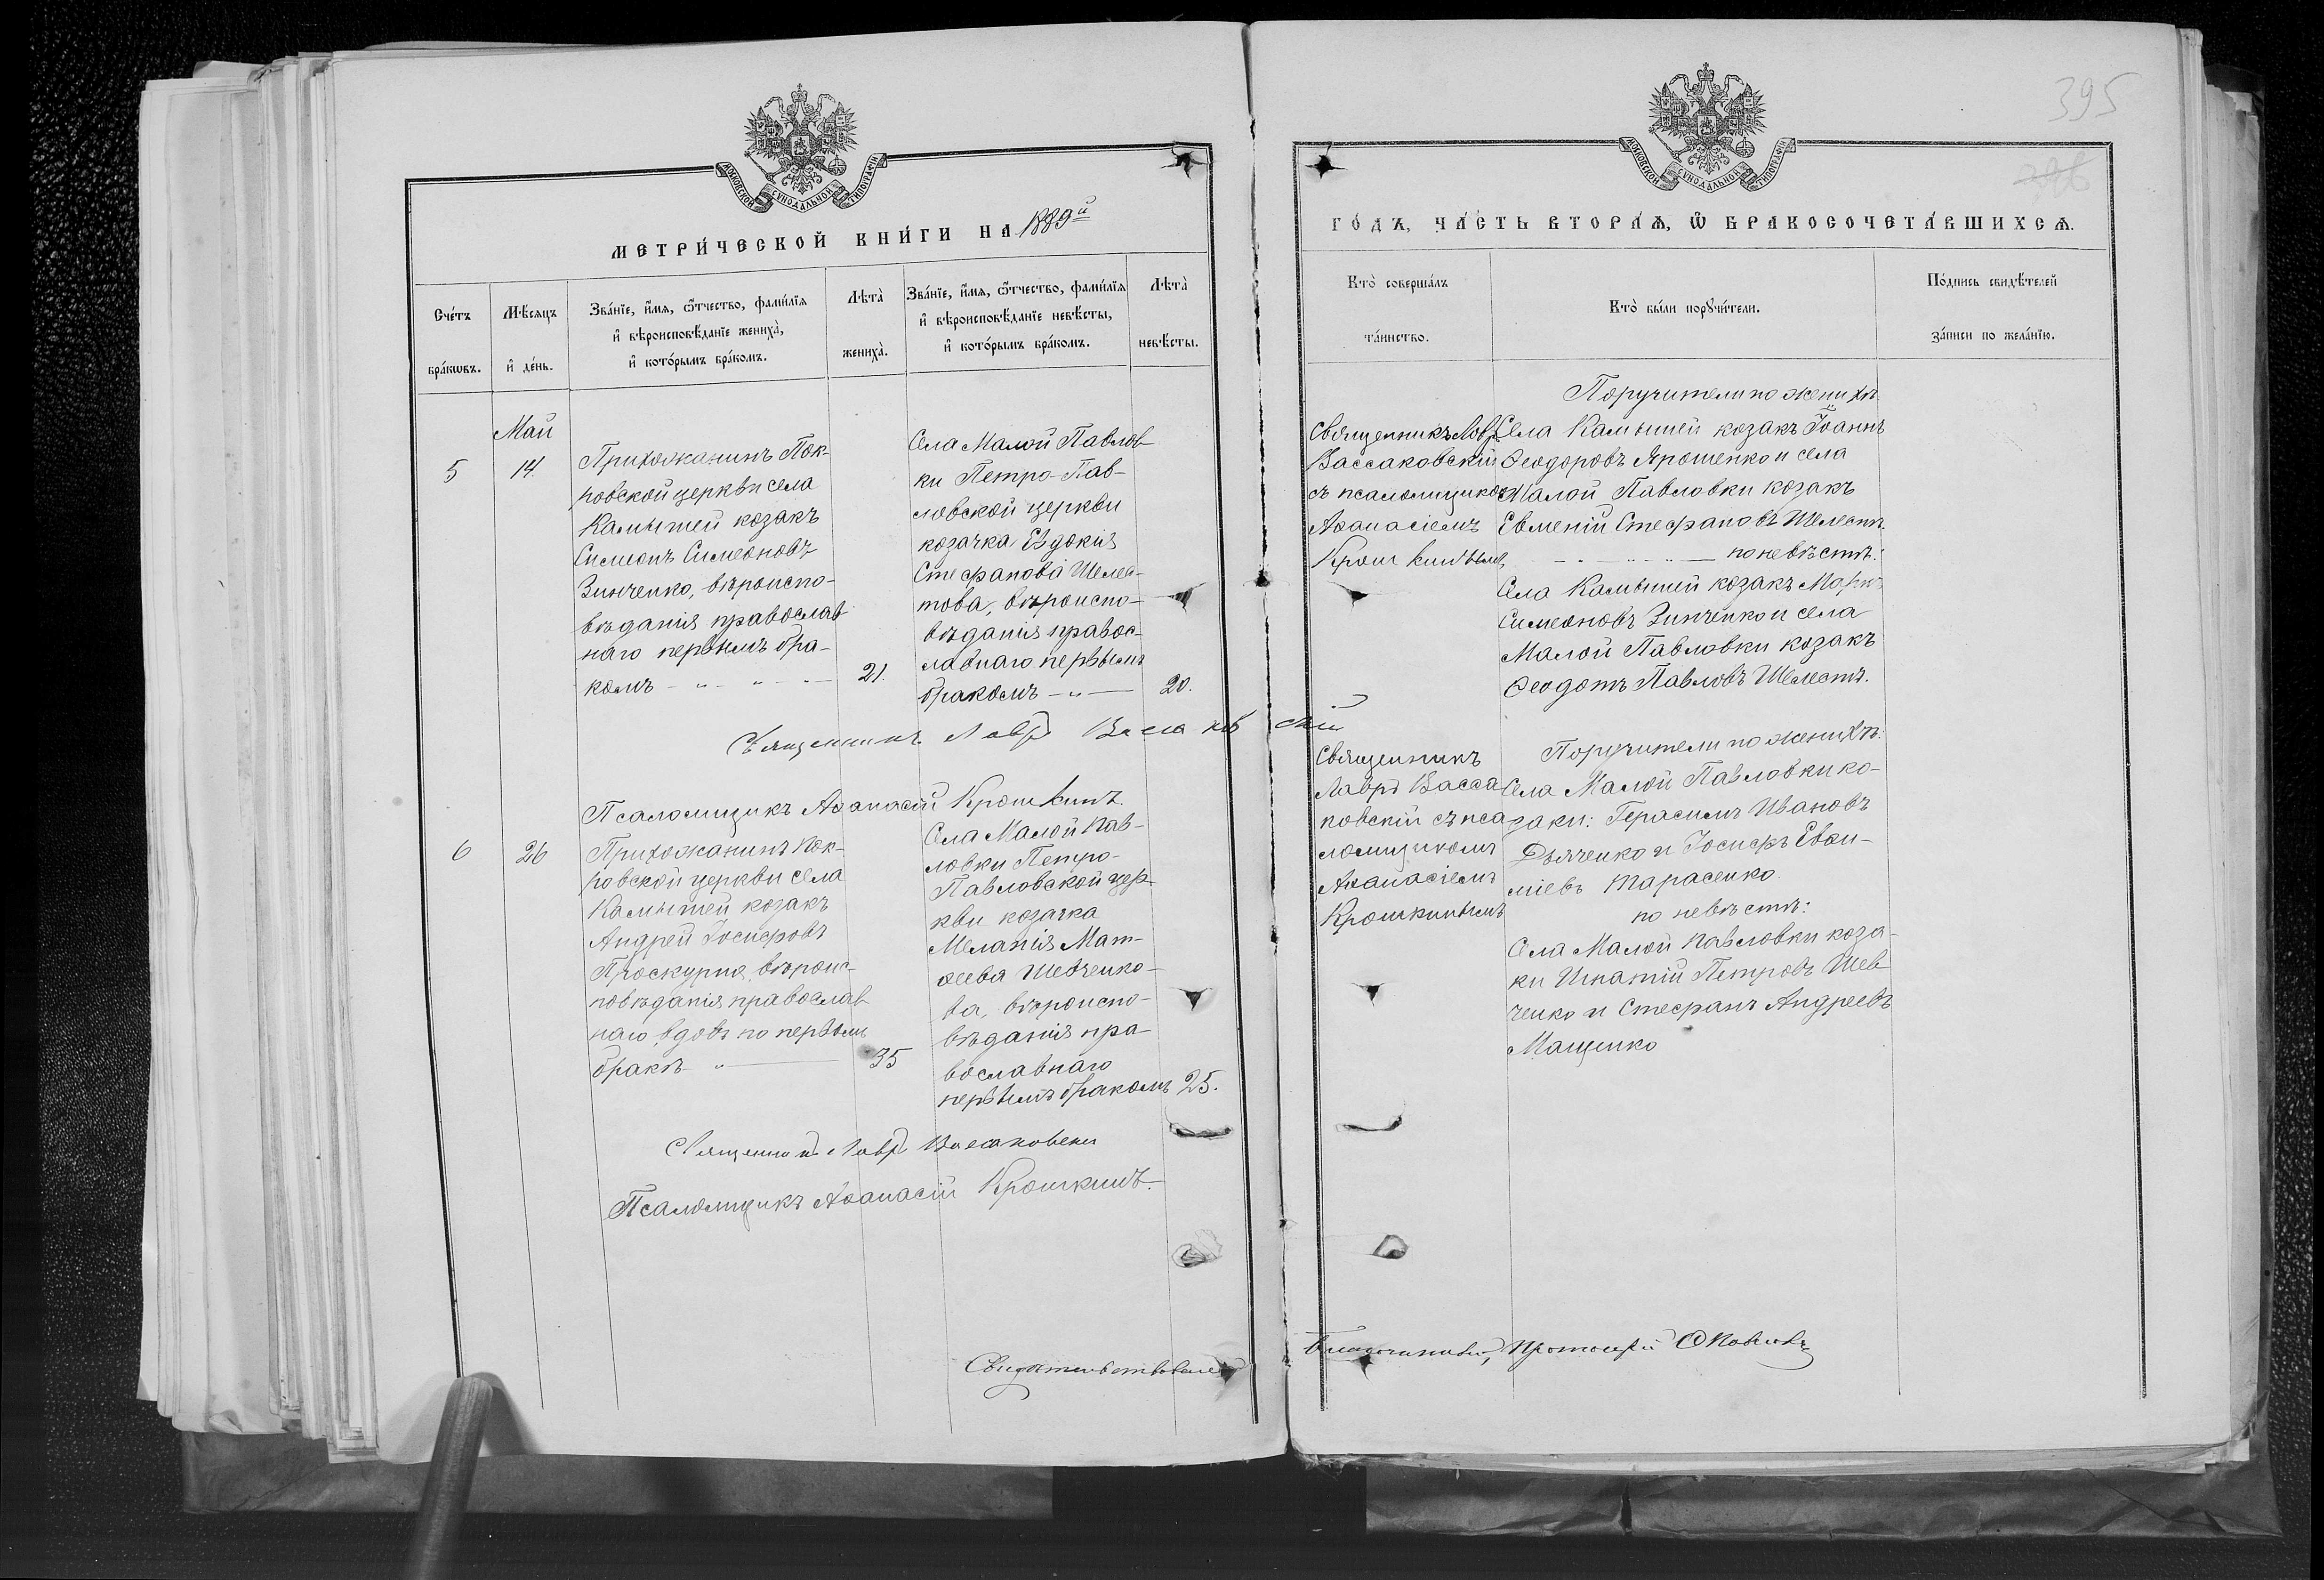 МОСКОВСКОЙ СУНОДАЛЬНОЙ ТИПОГРАФІИ
МЕТРИ́ЧЕСКОЙ КНИ́ГИ НА 1889й
Сче́тъ
бра́кωвъ.
Мѣ́сяцъ
и҆ де́нь.
Зва́нїе, и҆́мя, ѻ҆́тчество, фами́лїя
и҆ вѣроисповѣ́данїе жениха̀,
и҆ кото́рымъ бра́комъ.
Лѣта̀
жениха̀.
Зва́нїе, и҆́мя, ѻ҆́тчество, фами́лїя
и҆ вѣроисповѣ́данїе невѣ́сты,
и҆ кото́рымъ бра́комъ.
Лѣта̀
невѣ́сты.
Май
5
14.
Прихожанинъ Пок-
ровской церкви села
Камышей козакъ
Симеонъ Симеоновъ
Зинченко, вѣроиспо-
вѣданія православ
наго первымъ бра-
комъ
21.
Села Малой Павлов
ки Петро-Пав-
ловской церкви
козачка Евдокія
Стефанова Шелес-
това, вѣроиспо-
вѣданія правос-
лавнаго первымъ
бракомъ
20.
Священникъ Лавръ Вассаковскій
Псаломщикъ Аѳанасій Крошкинъ.
6
26
Прихожанинъ Пок-
ровской церкви села
Камышей козакъ
Андрей Іосифовъ
Проскурня, вѣроис-
повѣданія православ
наго, вдовъ по первомъ
бракѣ
35
Села Малой Пав-
ловки Петро-
Павловской цер-
кви козачка
Меланія Мат-
ѳеева Шевченко-
ва, вѣроиспо-
вѣданія пра-
вославнаго
первымъ бракомъ
25.
Священникъ Лавръ Вассаковскій
Псаломщикъ Аѳанасій Крошкинъ.
Свидѣтельствовалъ
395
МОСКОВСКОЙ СУНОДАЛЬНОЙ ТИПОГРАФІИ
ГО́ДЪ, ЧА́СТЬ ВТОРА́Я, Ѽ БРАКОСОЧЕТА́ВШИХСЯ.
Кто̀ соверша́лъ
та́инство.
Кто̀ бы́ли порꙋчи́тели.
По́дпись свидѣ́телей
за́писи по жела́нїю.
Священникъ Лавръ
Вассаковскій
съ псаломщикомъ
Аѳанасіемъ
Крошкинымъ
Поручители по женихѣ:
Села Камышей козакъ Іоаннъ
Ѳеодоровъ Ярошенко и села
Малой Павловки козакъ
Евменій Стефановъ Шелестъ.
по невѣстѣ:
Села Камышей козакъ
Симеоновъ Зинченко и села
Малой Павловки козакъ
Ѳеодотъ Павловъ Шелестъ.
Священникъ
Лавръ Васса
ковскій съ пса
ломщикомъ
Аѳанасіемъ
Крошкинымъ
Поручители по женихѣ:
Села Малой Павловки ко-
заки: Герасимъ Ивановъ
Дьяченко и Іосифъ Евѳи-
міевъ Тарасенко.
по невѣстѣ:
Села Малой Павловки коза-
ки Игнатій Петровъ Шев
ченко и Стефанъ Андреевъ
Мащенко
Благочинный, Протоіерей